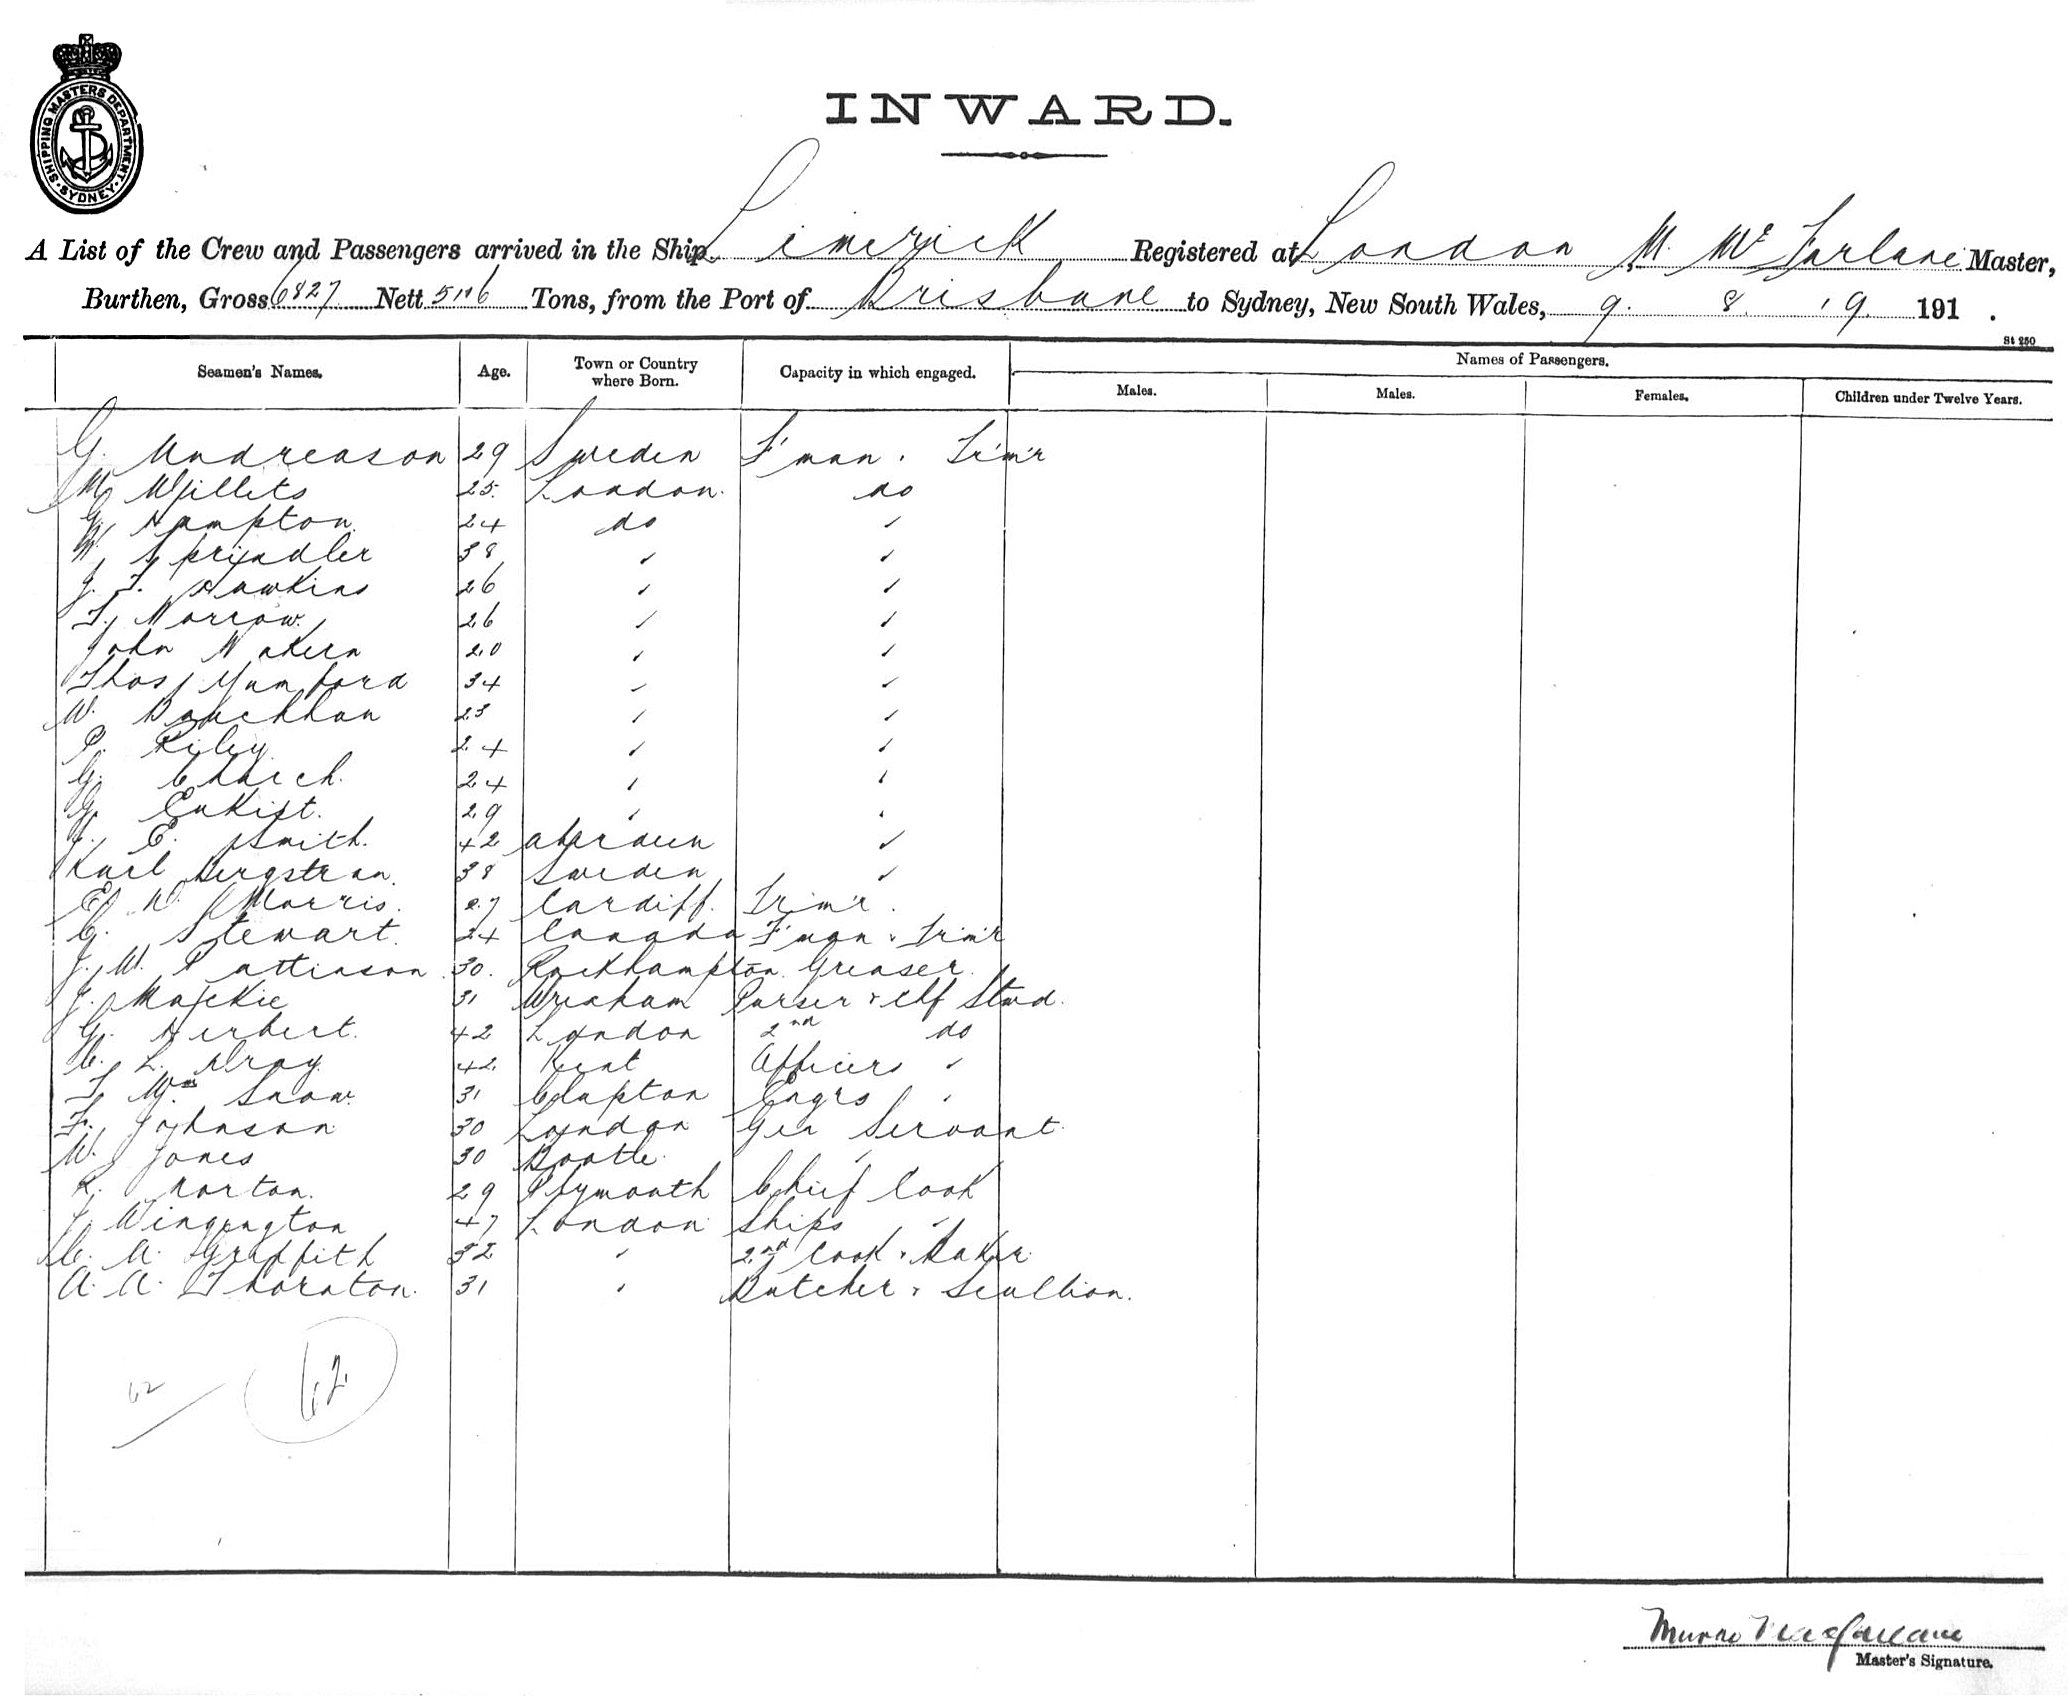 SHIPPING MASTERS DEPARTMENT. SYDNEY.
INWARD.
A List of the Crew and Passengers arrived in the Ship Limerick Registered at London M. McFarlane Master,
Burthen, Gross 6827 Nett Tons, from the Port of Brisbane to Sydney, New South Wales, 9. 8. 19. 191 .
St 250
Seamen's Names. Age. Town or Country where Born. Capacity in which engaged. Names of Passengers.
Males. Males. Females. Children under Twelve Years.
G. Andreason 29 Sweden F'man . Tr'm'r
M. Willets 25. London. do
G. Hampton. 24 do "
W. Sprindler 38 " "
J. F. Hawkins 26 " "
F. Morrow. 26 " "
John 20 " "
Thos Mumford 34 " "
W. 23 " "
P. Riley. 24 " "
G. Church. 24 " "
G. 29 " "
E. Smith. 42 Aberdeen "
Karl Bergstran. 38 Sweden "
E. W. Morris. 27 Cardiff. Trim'r.
C. Stewart. 24 Canada F'man & Trim'r
J. W. Pattinson 30. Rockhampton Greaser.
J. Mackie 31 Wrexham Purser & Chf Stwd.
G. Herbert. 42 London 2nd do
C. L. Dray. 42. Kent Officers "
F. Wm Snow. 31 Clapton Engrs "
F. Johnson 30 London Gen Servant.
W. Jones 30 Bootle. "
R. Norton. 29 Plymouth Chief Cook
J. Wingington 47 London Ships "
C. A. Griffith 32 " 2nd Cook & Baker.
A. A. Thornton. 31 " Butcher & Scullion.
62 62
Munro MacFarlane
Master's Signature.